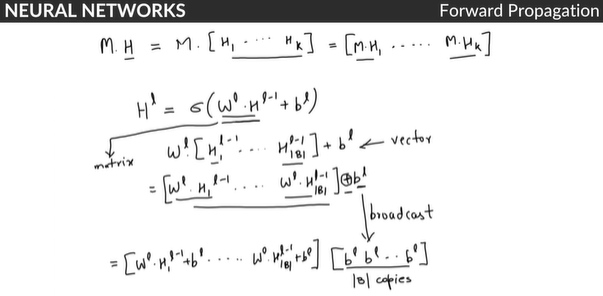 NEURAL NETWORKS Forward Propagation
M.H = M.[H₁ .... Hₖ] = [M.H₁ ..... M.Hₖ]
Hˡ = σ(Wˡ.Hˡ⁻¹ + bˡ)
matrix
Wˡ.[H₁ˡ⁻¹ .... H_|B|ˡ⁻¹] + bˡ ← vector
= [Wˡ.H₁ˡ⁻¹ .... Wˡ.H_|B|ˡ⁻¹] ⊕ bˡ
broadcast
= [Wˡ.H₁ˡ⁻¹+bˡ ..... Wˡ.H_|B|ˡ⁻¹+bˡ] [bˡ bˡ .. bˡ]
|B| copies